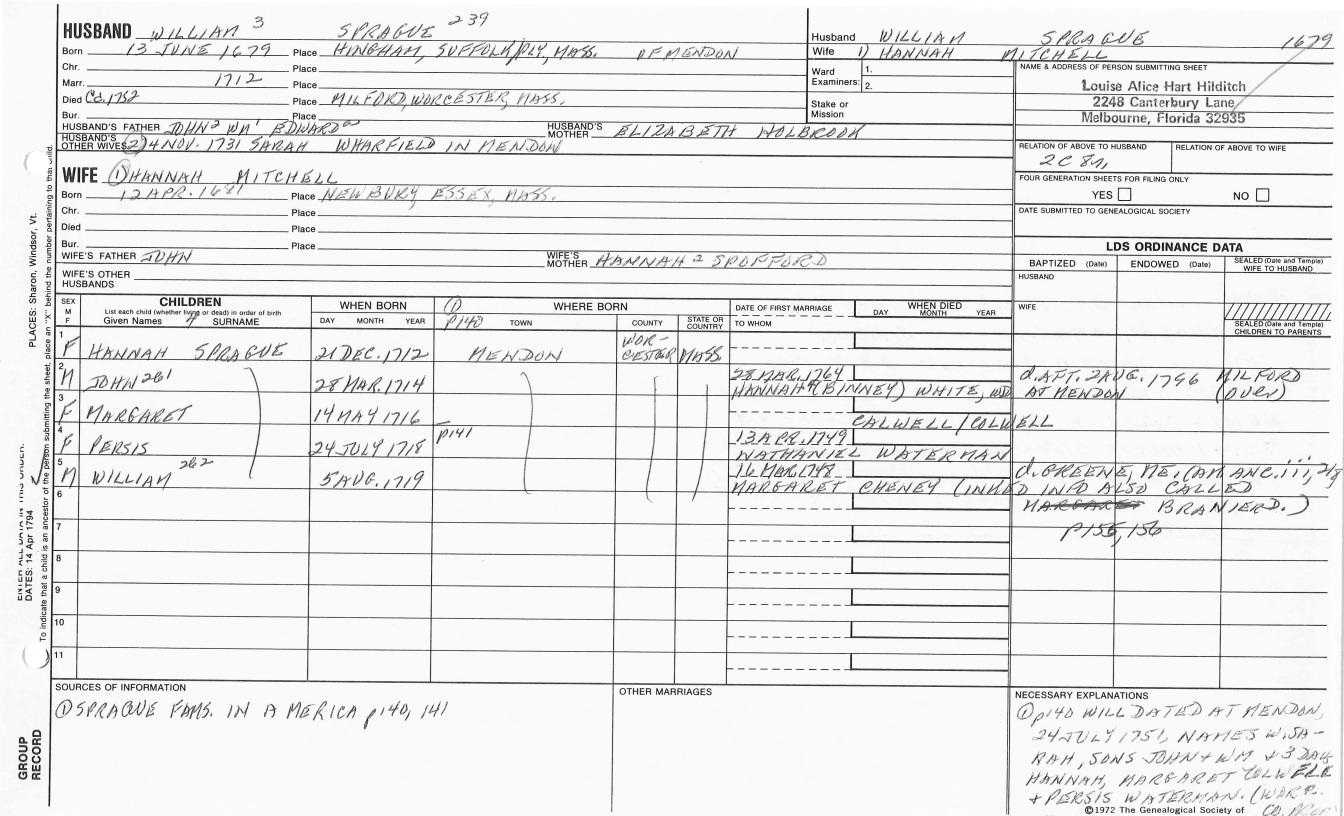 HUSBAND WILLIAM 3 SPRAGUE 239
Born 13 JUNE 1679 Place HINGHAM, SUFFOLK/PLY, MASS. OF MENDON
Chr. Place
Marr. 1712 Place
Died Ca. 1752 Place MILFORD, WORCESTER, MASS.
Bur. Place
HUSBAND'S FATHER JOHN2 WM1 EDWARD HUSBAND'S MOTHER ELIZABETH HOLBROOK
HUSBAND'S OTHER WIVES (2) 4 NOV. 1731 SARAH WHARFIELD IN MENDON
WIFE (1) HANNAH MITCHELL
Born 12 APR. 1681 Place NEWBURY, ESSEX, MASS.
Chr. Place
Died Place
Bur. Place
WIFE'S FATHER JOHN WIFE'S MOTHER HANNAH 2 SPOFFORD
WIFE'S OTHER HUSBANDS
Husband WILLIAM SPRAGUE 1679
Wife 1) HANNAH MITCHELL
Ward Examiners: 1.
2.
Stake or Mission
NAME & ADDRESS OF PERSON SUBMITTING SHEET
Louise Alice Hart Hilditch
2248 Canterbury Lane
Melbourne, Florida 32935
RELATION OF ABOVE TO HUSBAND RELATION OF ABOVE TO WIFE
2C 8r,
FOUR GENERATION SHEETS FOR FILING ONLY
YES NO
DATE SUBMITTED TO GENEALOGICAL SOCIETY
LDS ORDINANCE DATA
BAPTIZED (Date) ENDOWED (Date) SEALED (Date and Temple) WIFE TO HUSBAND
HUSBAND
WIFE
SEALED (Date and Temple) CHILDREN TO PARENTS
SEX M F
CHILDREN
List each child (whether living or dead) in order of birth
Given Names 4 SURNAME
WHEN BORN
DAY MONTH YEAR
(1) WHERE BORN
p140 TOWN COUNTY STATE OR COUNTRY
DATE OF FIRST MARRIAGE
TO WHOM
WHEN DIED
DAY MONTH YEAR
1 F HANNAH SPRAGUE 21 DEC. 1712 MENDON WORCESTER MASS
2 M JOHN 261 28 MAR. 1714 28 MAR. 1764 d. AFT. 2 AUG. 1796 MILFORD
HANNAH (BINNEY) WHITE, WD AT MENDON (OVER)
3 F MARGARET 14 MAY 1716
CALWELL/COLWELL
4 F PERSIS 24 JULY 1718 p141 13 APR. 1749
NATHANIEL WATERMAN
5 M WILLIAM 262 5 AUG. 1719 16 MAR. 1748 d. GREENE, ME. (AM. ANC. iii,
MARGARET CHENEY (INKED INFO ALSO CALLED
6 MARGARET BRANIERD.)
7 p155, 156
8
9
10
11
SOURCES OF INFORMATION
(1) SPRAGUE FAMS. IN AMERICA p140, 141
OTHER MARRIAGES
NECESSARY EXPLANATIONS
(1) p140 WILL DATED AT MENDON,
24 JULY 1751, NAMES W. SA-
RAH, SONS JOHN + WM + 3 DAU
HANNAH, MARGARET COLWELL
+ PERSIS WATERMAN. (WORC.
©1972 The Genealogical Society of CO.
PLACES: Sharon, Windsor, Vt.
ENTER ALL DATA IN THIS ORDER:
DATES: 14 Apr 1794
To indicate that a child is an ancestor of the person submitting the sheet, place an "X" behind the number pertaining to that child.
GROUP RECORD